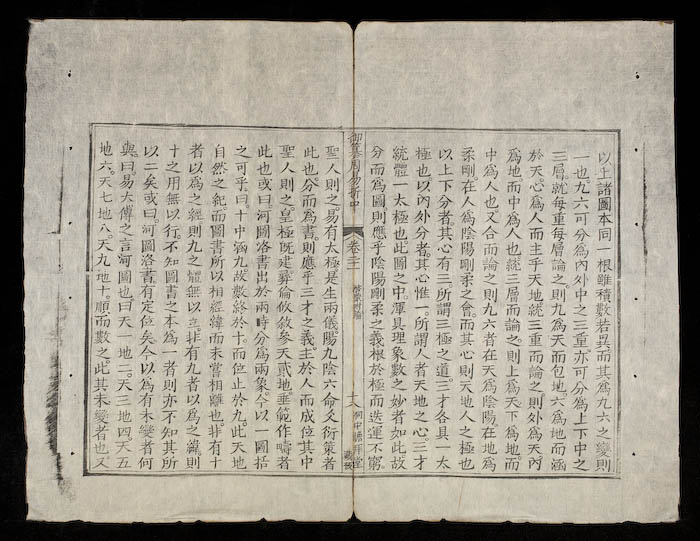 以上諸圖本同一根雖積數若異而其為九六之變則
一也九六可分為內外中之三重亦可分為上下中之
三層就每重每層論之則九為天而包地六為地而涵
於天心為人而主乎天地就三重而論之則外為天內
為地而中為人也就三層而論之則上為天下為地而
中為人也又合而論之則九六者在天為陰陽在地為
柔剛在人為陰陽剛柔之會而其心則天地人之極也
以上下分者其心有三所謂三極之道三才各具一太
極也以內外分者其心惟一所謂人者天地之心三才
統體一太極也此圖之中渾具理象數之妙者如此故
分而為圖則應乎陰陽剛柔之義根於極而迭運不窮
御纂周易折中 卷 啓蒙附論
聖人則之易有太極是生兩儀陽九陰六命爻衍策者
此也分而為書則應乎三才之義主於人而成位其中
聖人則之皇極既建彝倫攸敘參天貳地垂範作疇者
此也或曰河圖洛書出於兩時分為兩象今以一圖括
之可乎曰十中涵九故數終於十而位止於九此天地
自然之紀而圖書所以相經緯而未嘗相離也非有十
者以為之經則九之體無以立非有九者以為之緯則
十之用無以行不知圖書之本為一者則亦不知其所
以二矣或曰河圖洛書有定位矣今以為有未變者何
與曰易大傳之言河圖也曰天一地二天三地四天五
地六天七地八天九地十順而數之此其未變者也又